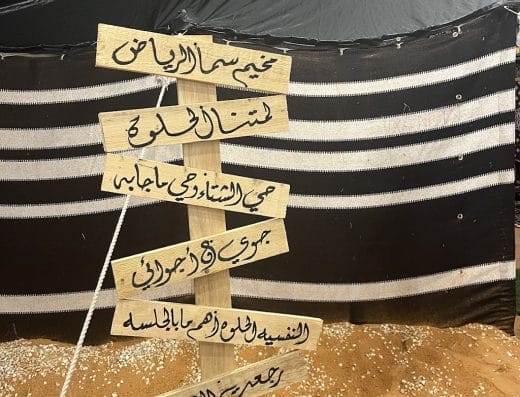 مخيم سما الرياض
لمتنا الحلوة
حي الشتاء وحي ما جابه
جوي في أجوائي
النفسيه الحلوه أهم ما بالجلسه